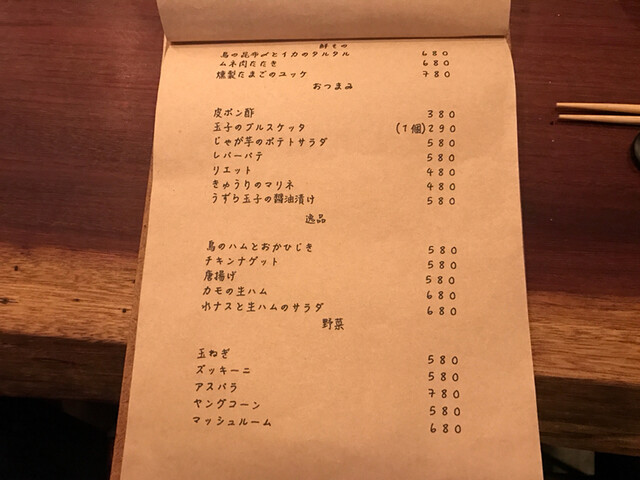 鮮もの
鳥の昆布〆とイカのタルタル 680
ムネ肉たたき 680
燻製たまごのユッケ 780
おつまみ
皮ポン酢 380
玉子のブルスケッタ (1個)290
じゃが芋のポテトサラダ 580
レバーパテ 580
リエット 480
きゅうりのマリネ 480
うずら玉子の醤油漬け 580
逸品
鳥のハムとおかひじき 580
チキンナゲット 580
唐揚げ 580
カモの生ハム 680
水ナスと生ハムのサラダ 680
野菜
玉ねぎ 580
ズッキーニ 580
アスパラ 780
ヤングコーン 580
マッシュルーム 680